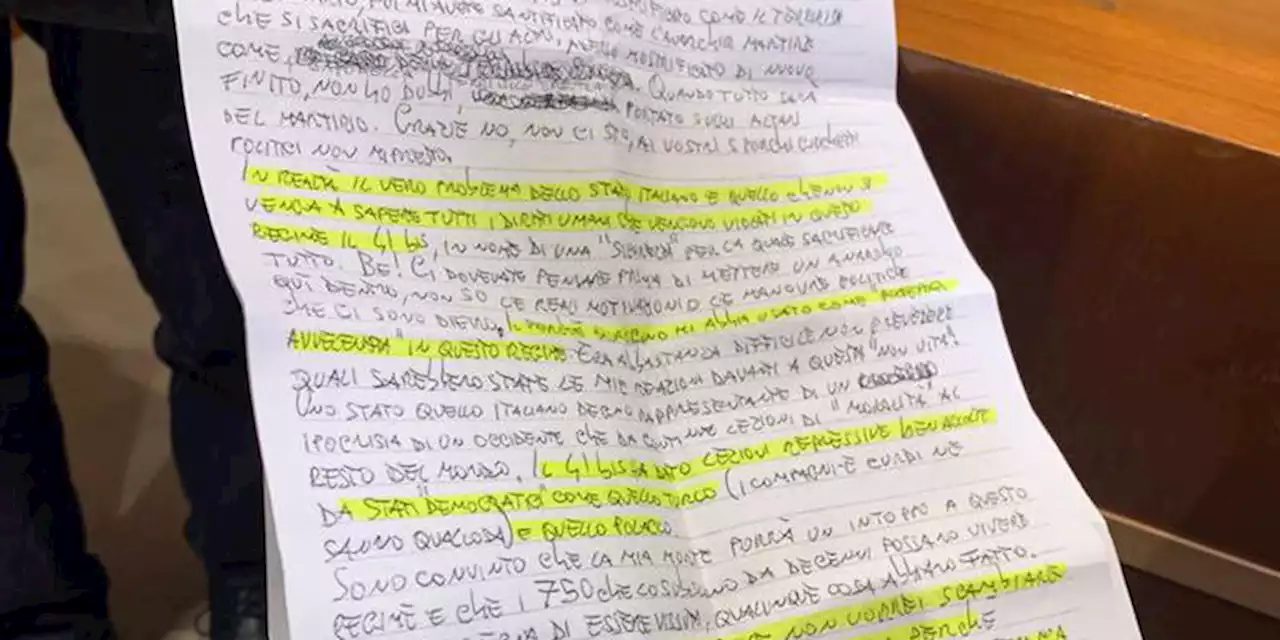 POI MI AVETE SANTIFICATO COME L'ANARCHICO MARTIRE
CHE SI SACRIFICA PER GLI ALTRI, DI NUOVO
COME QUANDO TUTTO SARÀ
FINITO, NON HO DUBBI, PORTATO SUGLI ALTARI
DEL MARTIRIO. GRAZIE NO, NON CI STO, AI VOSTRI SPORCHI GIOCHETTI
POLITICI NON MI PRESTO.
IN REALTÀ IL VERO PROBLEMA DELLO STATO ITALIANO È QUELLO CHE NON SI
VENGA A SAPERE TUTTI I DIRITTI UMANI CHE VENGONO VIOLATI IN QUESTO
REGIME IL 41 BIS, IN NOME DI UNA "SICUREZZA" PER LA QUALE SACRIFICARE
TUTTO. BE! CI DOVEVATE PENSARE PRIMA DI METTERE UN ANARCHICO
QUI DENTRO, NON SO LE REALI MOTIVAZIONI O LE MANOVRE POLITICHE
CHE CI SONO DIETRO. IL PERCHÉ QUALCUNO MI ABBIA USATO COME "POLPETTA
AVVELENATA" IN QUESTO REGIME. ERA ABBASTANZA DIFFICILE NON PREVEDERE
QUALI SAREBBERO STATE LE MIE REAZIONI DAVANTI A QUESTA "NON VITA".
UNO STATO QUELLO ITALIANO DEGNO RAPPRESENTANTE DI UN
IPOCRISIA DI UN OCCIDENTE CHE DA CONTINUE LEZIONI DI "MORALITÀ" AL
RESTO DEL MONDO. IL 41 BIS HA DATO LEZIONI REPRESSIVE BEN ACCOLTE
DA STATI "DEMOCRATICI" COME QUELLO TURCO (I COMPAGNI-E CURDI NE
SANNO QUALCOSA) E QUELLO POLACCO
SONO CONVINTO CHE LA MIA MORTE PORRÀ UN INTOPPO A QUESTO
REGIME E CHE I 750 CHE LO SUBISCONO DA DECENNI POSSANO VIVERE
DI ESSERE VISSUTA, QUALUNQUE COSA ABBIANO FATTO.
NON VORREI SCAMBIARE
PERCHÉ